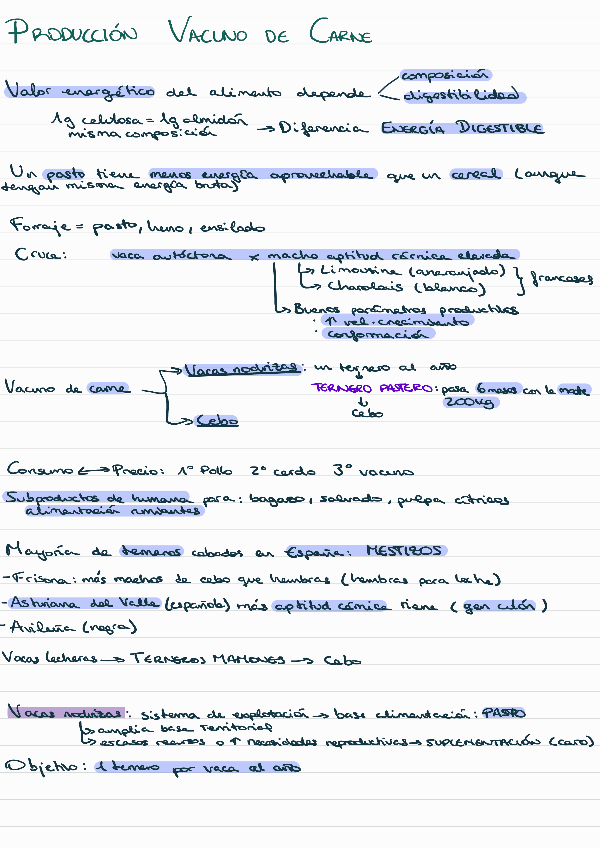 PRODUCCIÓN VACUNO DE CARNE
composición
Valor energético del alimento depende
digestibilidad
1g celulosa = 1g almidón
misma composición → Diferencia ENERGÍA DIGESTIBLE
Un pasto tiene menos energía aprovechable que un cereal (aunque
tengan misma energía bruta)
Forraje = pasto, heno, ensilado
Cruce: vaca autóctona x macho aptitud cárnica elevada
↳ Limousine (anaranjado)
↳ Charolais (blanco)
} francesas
↳ Buenos parámetros productivos
· ↑ vel. crecimiento
· conformación
→ Vacas nodrizas: un ternero al año
Vacuno de carne
TERNERO PASTERO: pasa 6 meses con la madre
↓ 200kg
cebo
→ Cebo
Consumo ↔ Precio: 1º Pollo 2º cerdo 3º vacuno
Subproductos de humana para: bagazo, salvado, pulpa cítricos
alimentación rumiantes
Mayoría de terneros cebados en España: MESTIZOS
- Frisona: más machos de cebo que hembras (hembras para leche)
- Asturiana del Valle (española) más aptitud cárnica tiene (gen culón)
- Avileña (negra)
Vacas lecheras → TERNEROS MAMONES → Cebo
Vacas nodrizas: sistema de explotación → base alimentación: PASTO
↳ amplia base territorial
↳ escasos recursos o ↑ necesidades reproductivas → SUPLEMENTACIÓN (caro)
Objetivo: 1 ternero por vaca al año